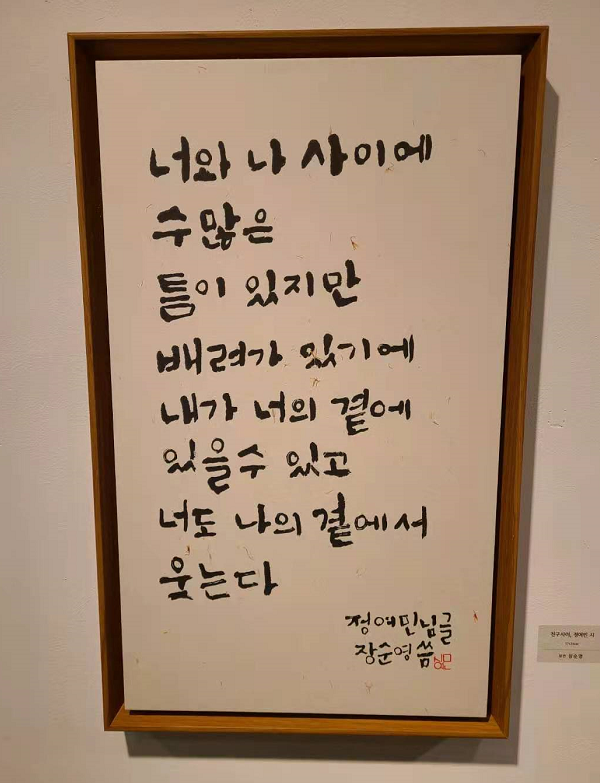 너와 나 사이에
수많은
틈이 있지만
배려가 있기에
내가 너의 곁에
있을수 있고
너도 나의 곁에서
웃는다
정여민님글
장순영 씀
친구사이, 정여민 시
장순영